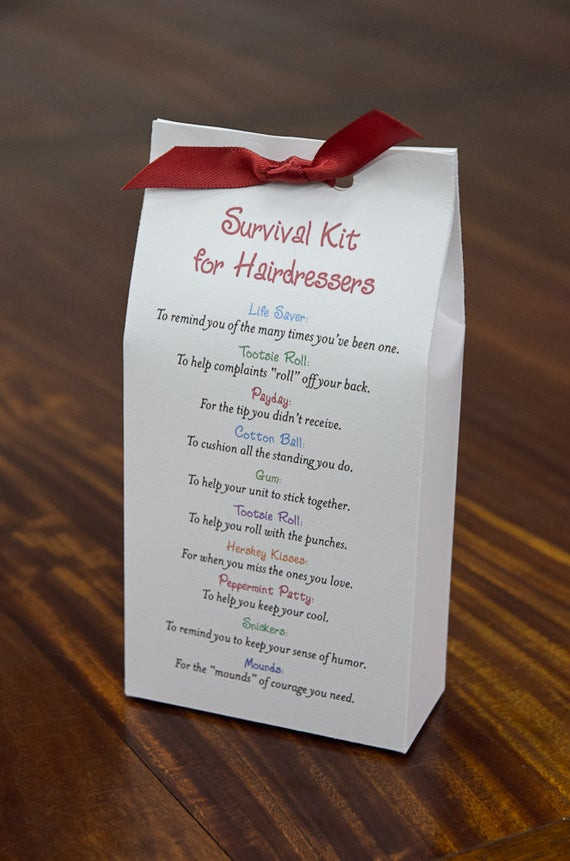 Survival Kit
for Hairdressers
Life Saver:
To remind you of the many times you've been one.
Tootsie Roll:
To help complaints "roll" off your back.
Payday:
For the tip you didn't receive.
Cotton Ball:
To cushion all the standing you do.
Gum:
To help your unit to stick together.
Tootsie Roll:
To help you roll with the punches.
Hershey Kisses:
For when you miss the ones you love.
Peppermint Patty:
To help you keep your cool.
Snickers:
To remind you to keep your sense of humor.
Mounds:
For the "mounds" of courage you need.